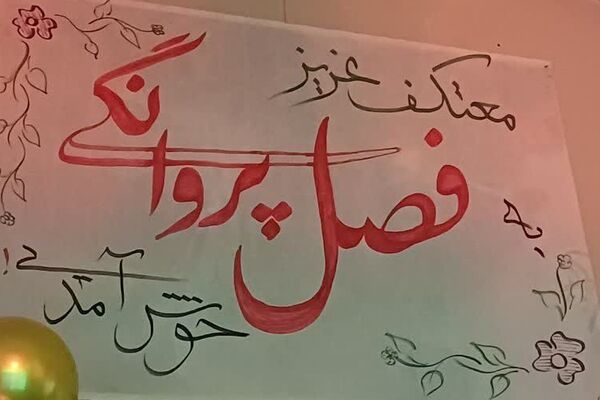 معتکف عزیز
به
فصل پروانگی
خوش آمدی!